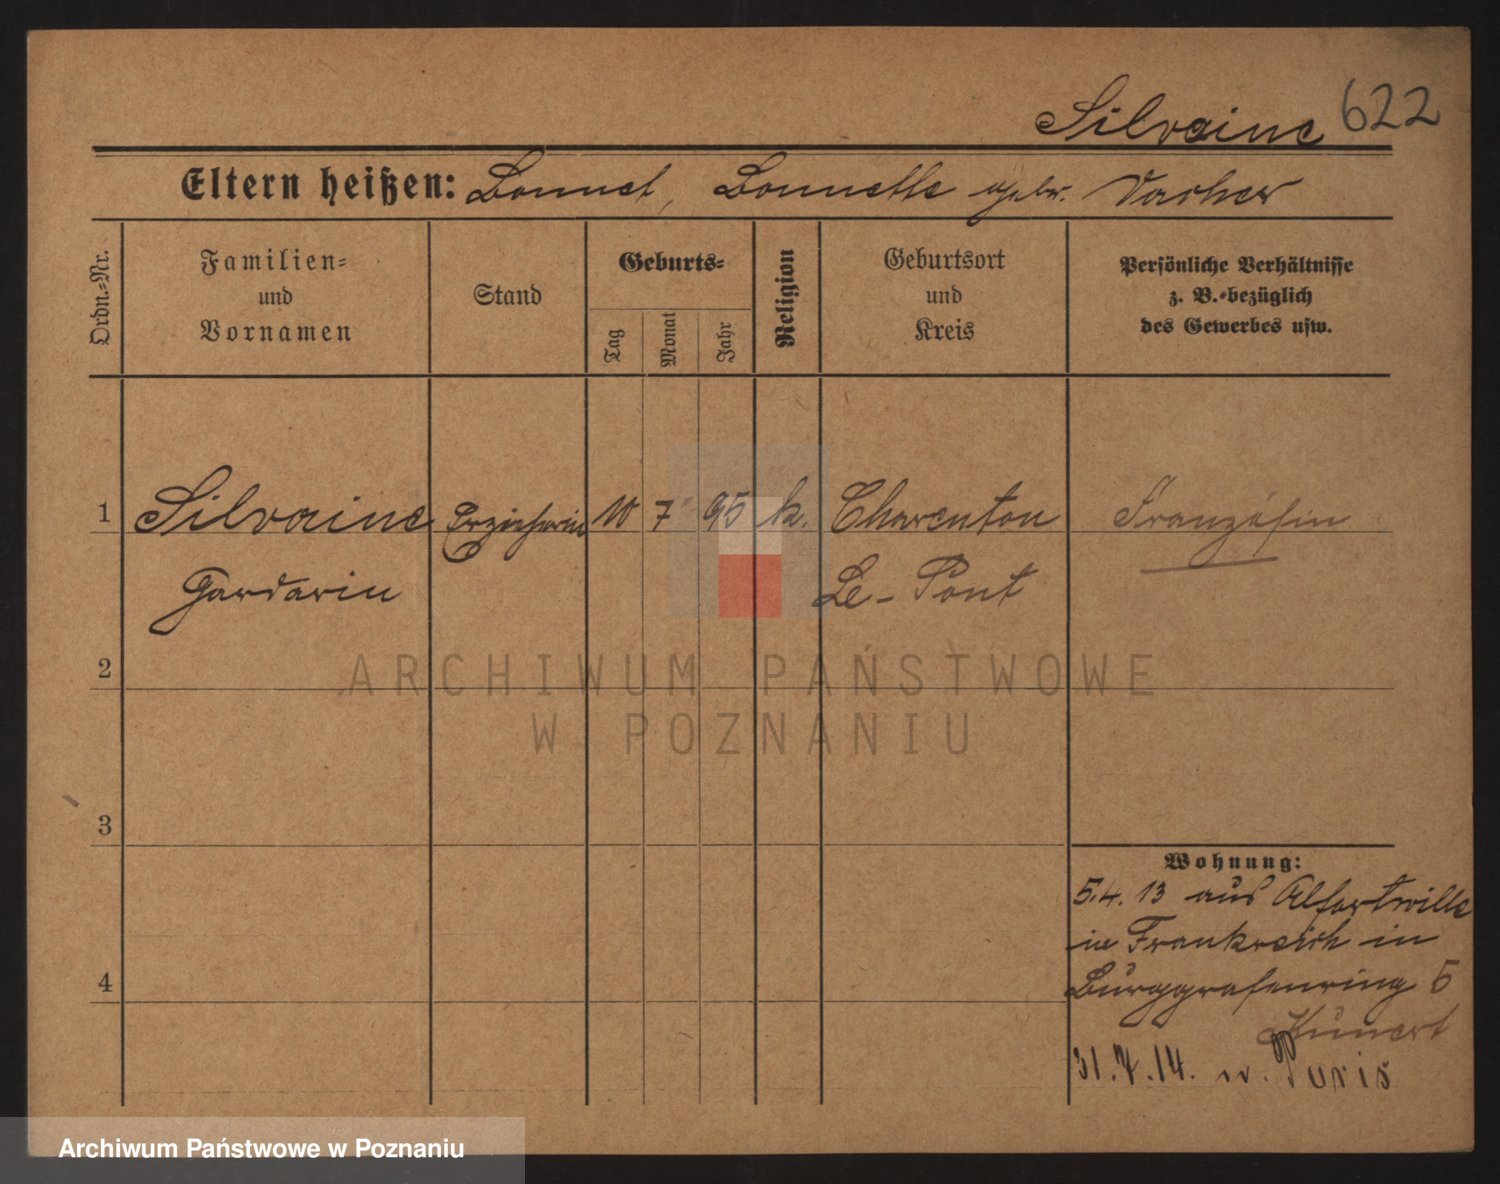 Silvaine 622
Eltern heißen: Bonnet, Bonnette geb. Vacher
Ordn.=Nr.
Familien=
und
Vornamen
Stand
Geburts=
Tag
Monat
Jahr
Religion
Geburtsort
und
Kreis
Persönliche Verhältnisse
z. B. bezüglich
des Gewerbes usw.
1 Silvaine Erzieherin 10 7 95 k. Charenton Französin
Gardarin Le-Pont
2
3
4
Wohnung:
5.4.13 aus Alfortville
in Frankreich in
Burggrafenring 5
Kunert
31.7.14. n. Paris
ARCHIWUM PAŃSTWOWE
W POZNANIU
Archiwum Państwowe w Poznaniu